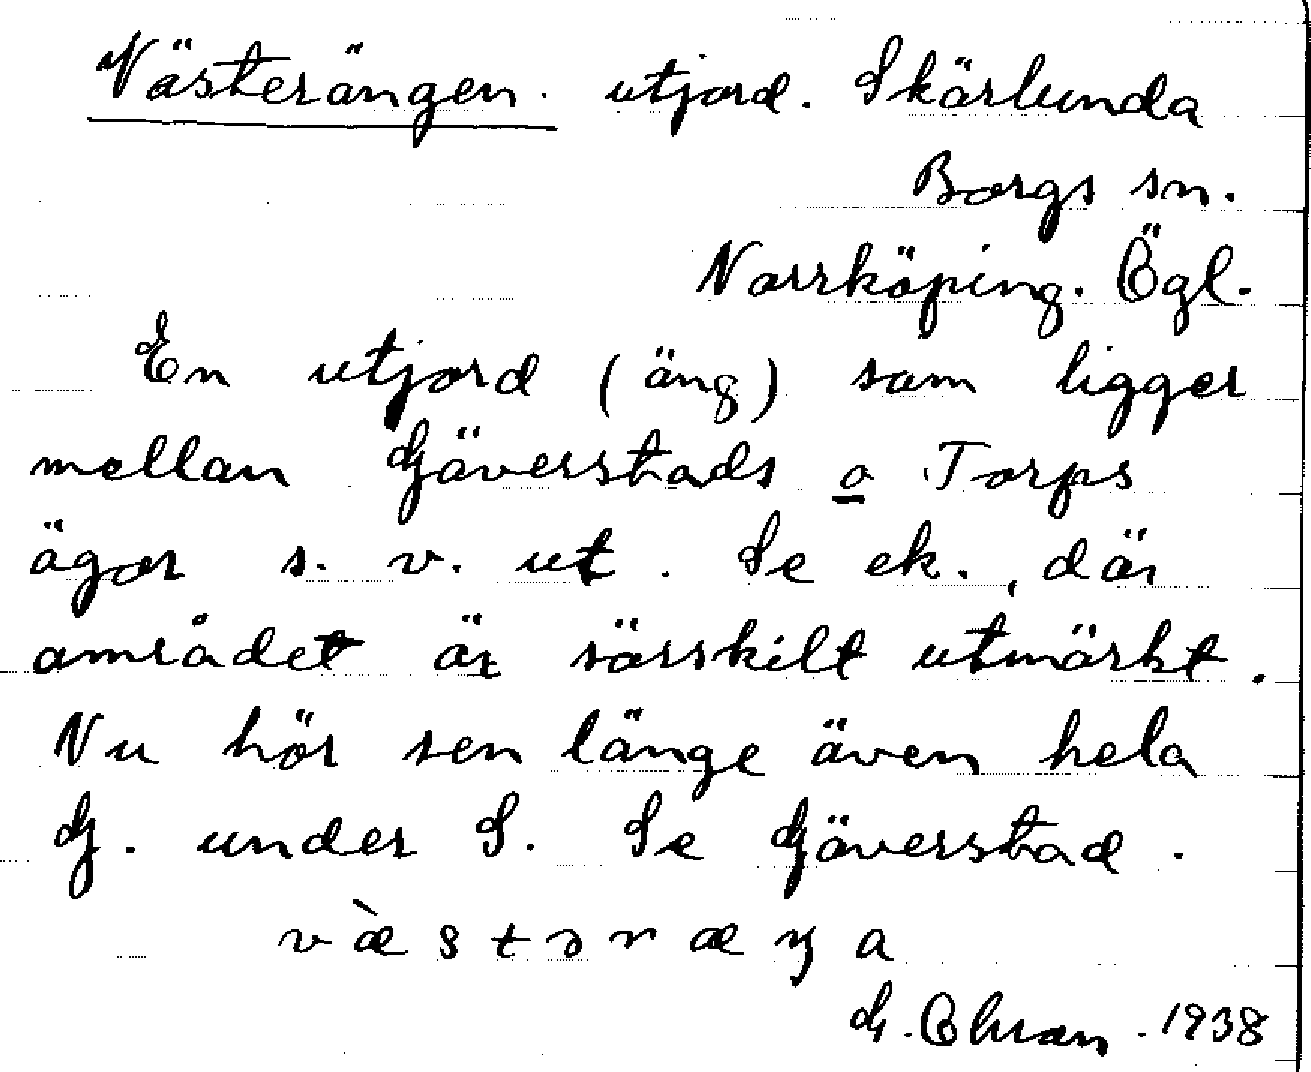 Västerängen. utjord. Skärlunda
Borgs sn.
Norrköping. Ögl.
En utjord (äng) som ligger
mellan Gäverstads o Torps
ägor s. v. ut. Se ek., där
området är särskilt utmärkt.
Nu hör sen länge även hela
G. under S. Se Gäverstad.
v æ̀ s t ə r æ ŋ a
G. 1938